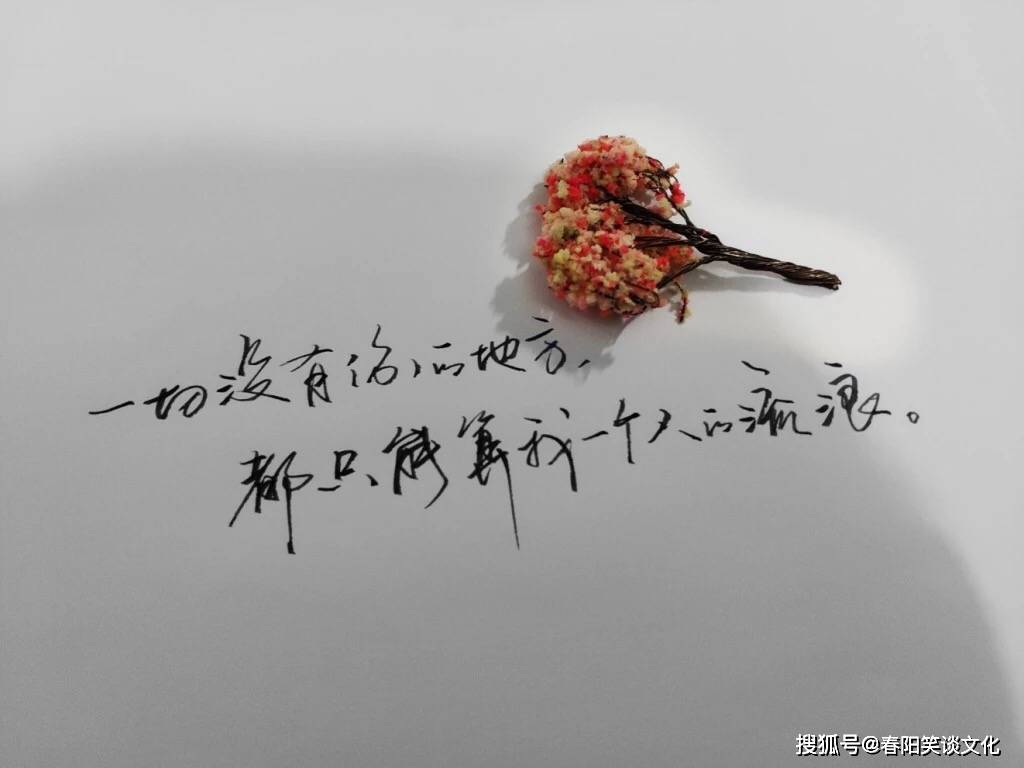 一切没有你的地方,
都只能算我一个人的流浪。
搜狐号@春阳笑谈文化